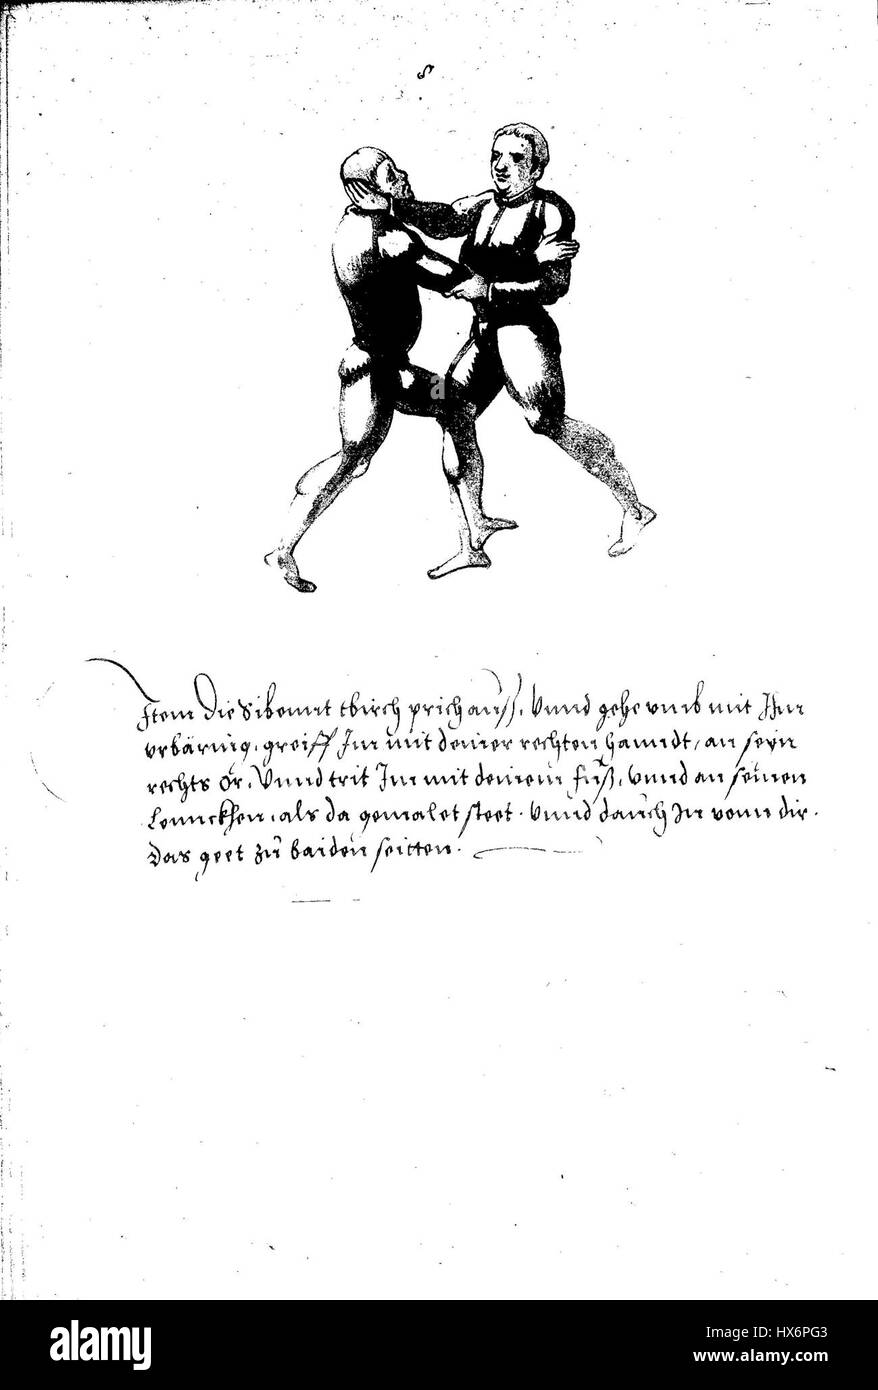 8
Item Die Sibennt thirch prich auß, Vnnd gehe vmb mit Im
vrbäring, greiff Im mit deiner rechten hanndt, an seyn
rechts Or, Vnnd trit Im mit deinem fuß, vnnd an seinen
Lennckhen, als da gemalet steet. Vnnd dauch In vonn dir.
Das geet zu baiden seitten.
a
a
alamy
Image ID: HX6PG3
www.alamy.com